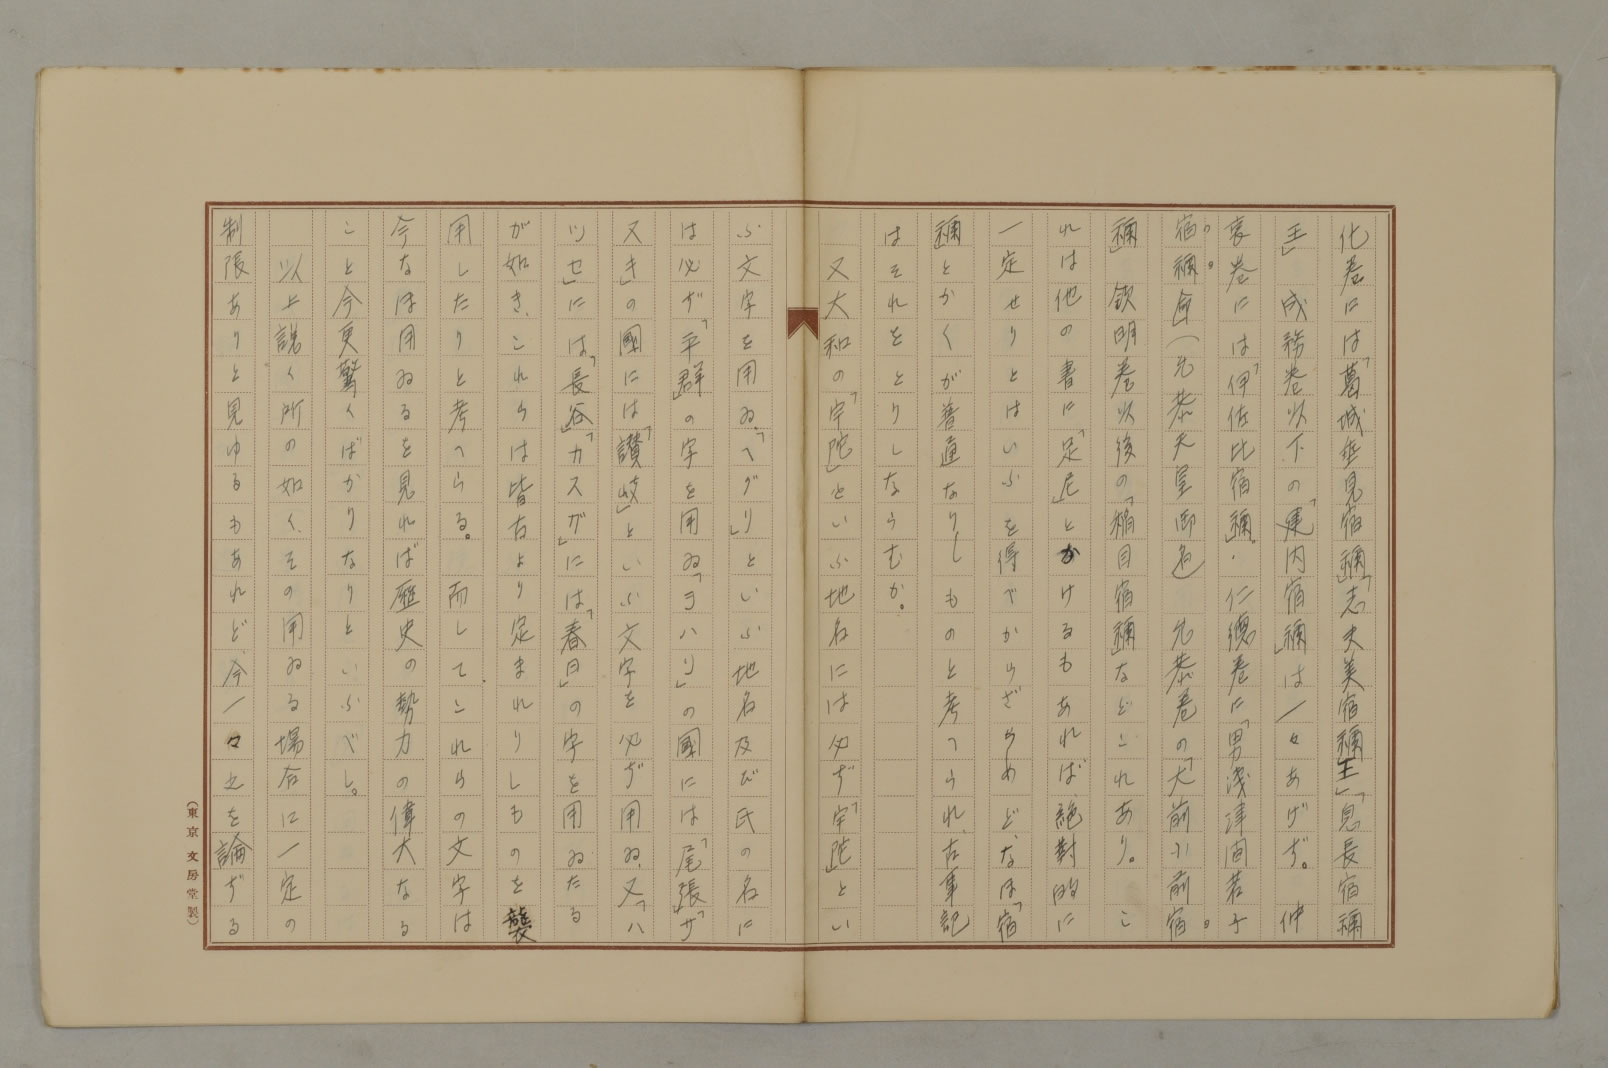 化巻には「葛城垂見宿禰」「志夫美宿禰王」「息長宿禰
王」成務巻以下の「建内宿禰」は一々あげず。仲
哀巻には「伊佐比宿禰」。仁徳巻に「男浅津間若子
宿禰命」(允恭天皇御名)允恭巻の「大前小前宿
禰」欽明巻以後の「稲目宿禰」などこれあり。こ
れは他の書に「足尼」とかけるもあれば絶對的に
一定せりとはいふを得べからざらめど、なほ「宿
禰」とかくが普通なりしものと考へられ、古事記
はそれをとりしならむか。
又大和の「宇陀」といふ地名には必ず「宇陀」とい
ふ文字を用ゐ、「へグリ」といふ地名及び氏の名に
は必ず「平群」の字を用ゐ「ヲハリ」の國には「尾張」「サ
ヌキ」の國には「讃岐」といふ文字を必ず用ゐ、又「ハ
ツセ」には「長谷」「カスガ」には「春日」の字を用ゐたる
が如き、これらは皆古より定まれりしものを襲
用したりと考へらる。而してこれらの文字は
今なほ用ゐるを見れば歴史の勢力の偉大なる
こと今更驚くばかりなりといふべし。
以上説く所の如く、その用ゐる場合に一定の
制限ありと見ゆるもあれど、今一々之を論ずる
(東京文房堂製)